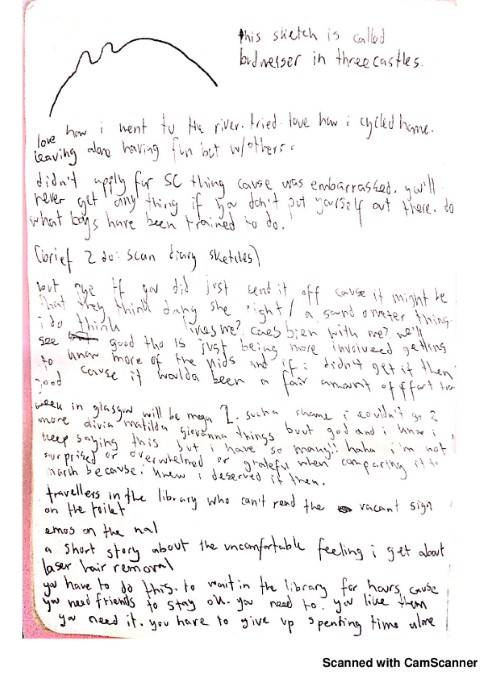 this sketch is called
budweiser in threecastles.
love how i went to the river. tried. love how i cycled home.
leaving alone having fun but w/others.
didn't apply for SC thing cause was embarrashed. you'll
never get any thing if you don't put yourself out there. do
what boys have been trained to do.
(brief 2 do: scan diary sketches)
but if you did just send it off cause it might be
that they think dang she right / a sound omater thing.
i do think likes me? caes bien with me? we'll
see good tho is just being more invulved getting
to know more of the kids and if i didn't get it then
good cause it woulda been a fair amount of effort too
week in glasgow will be mega 1. sucha shame i couldn't go 2
more divin matilda giovanna things buut god and i know i
keep saying this but i have so many!! haha i'm not
surprised or overwhelmed or grateful when comparing it to
march because i knew i deserved it then.
travellers in the library who can't read the vacant sign
on the toilet
emos on the nal
a short story about the uncomfortable feeling i get about
laser hair removal
you have to do this. to wait in the library for hours cause
you need friends to stay ok. you need to. you like them
you need it. you have to give up spenting time alone
Scanned with CamScanner